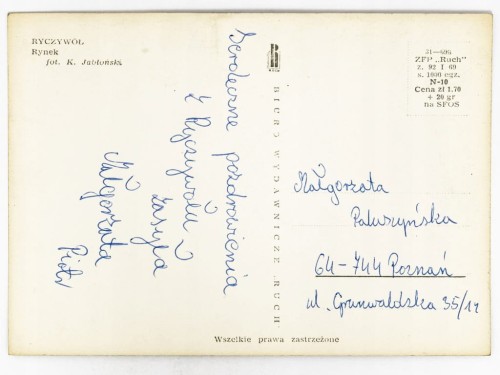 RYCZYWÓŁ
Rynek
fot. K. Jabłoński
Serdeczne pozdrowienia
z Ryczywołu
zasyła
Małgorzata
Piotr
RUCH
BIURO WYDAWNICZE „RUCH"
31—696
ZFP „Ruch"
z. 92 I 69
n. 1000 egz.
N-10
Cena zł 1.70
+ 20 gr
na SFOS
Małgorzata
Paluszyńska
64-744 Poznań
ul. Grunwaldska 35/14
Wszelkie prawa zastrzeżone